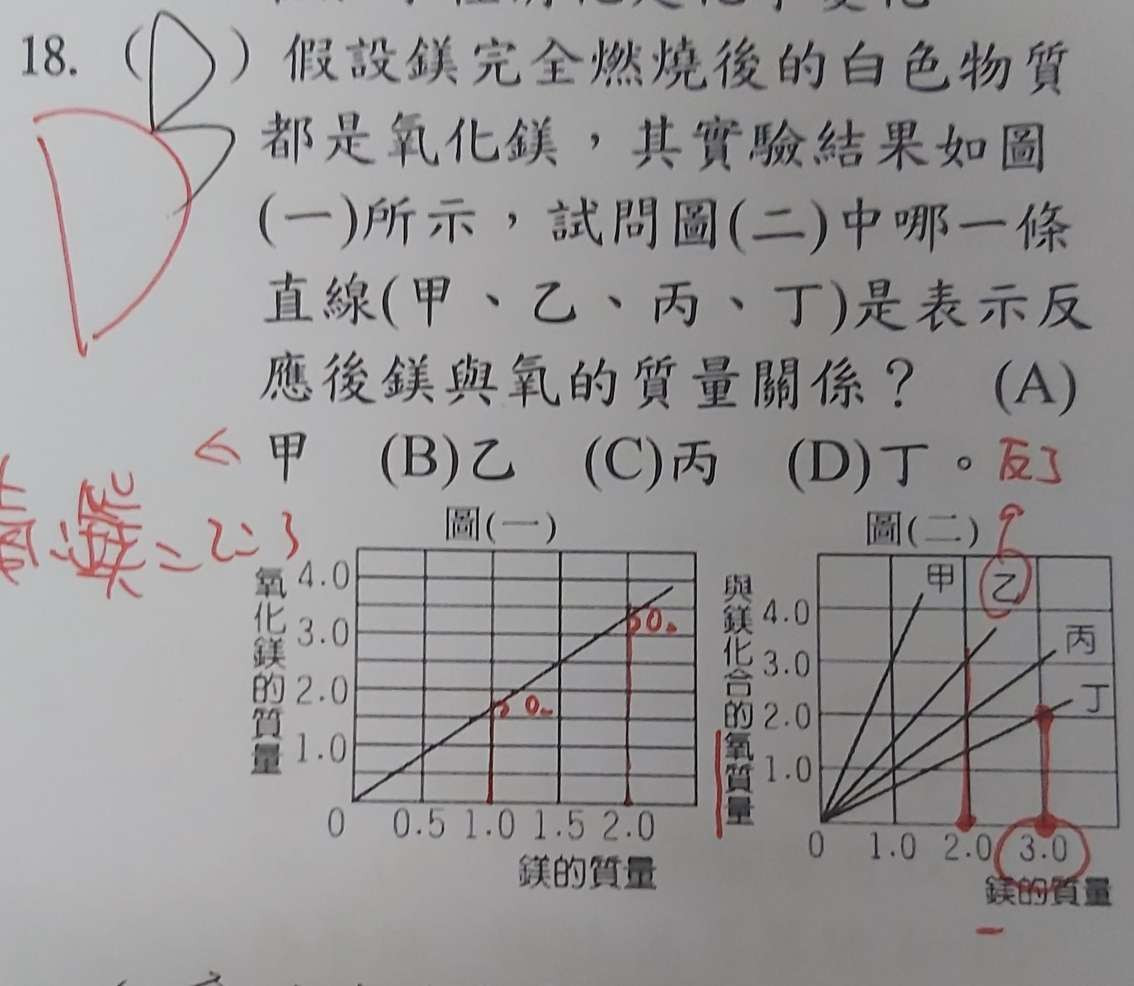 18. (D) 假設鎂完全燃燒後的白色物質
都是氧化鎂，其實驗結果如圖
(一)所示，試問圖(二)中哪一條
直線(甲、乙、丙、丁)是表示反
應後鎂與氧的質量關係？ (A)
甲 (B)乙 (C)丙 (D)丁。反了
D
=2:3
圖(一)
氧化鎂的質量
4.0
3.0
2.0
1.0
0 0.5 1.0 1.5 2.0
鎂的質量
圖(二)
與鎂化合的氧質量
4.0
3.0
2.0
1.0
甲 乙
丙
丁
0 1.0 2.0 3.0
鎂的質量